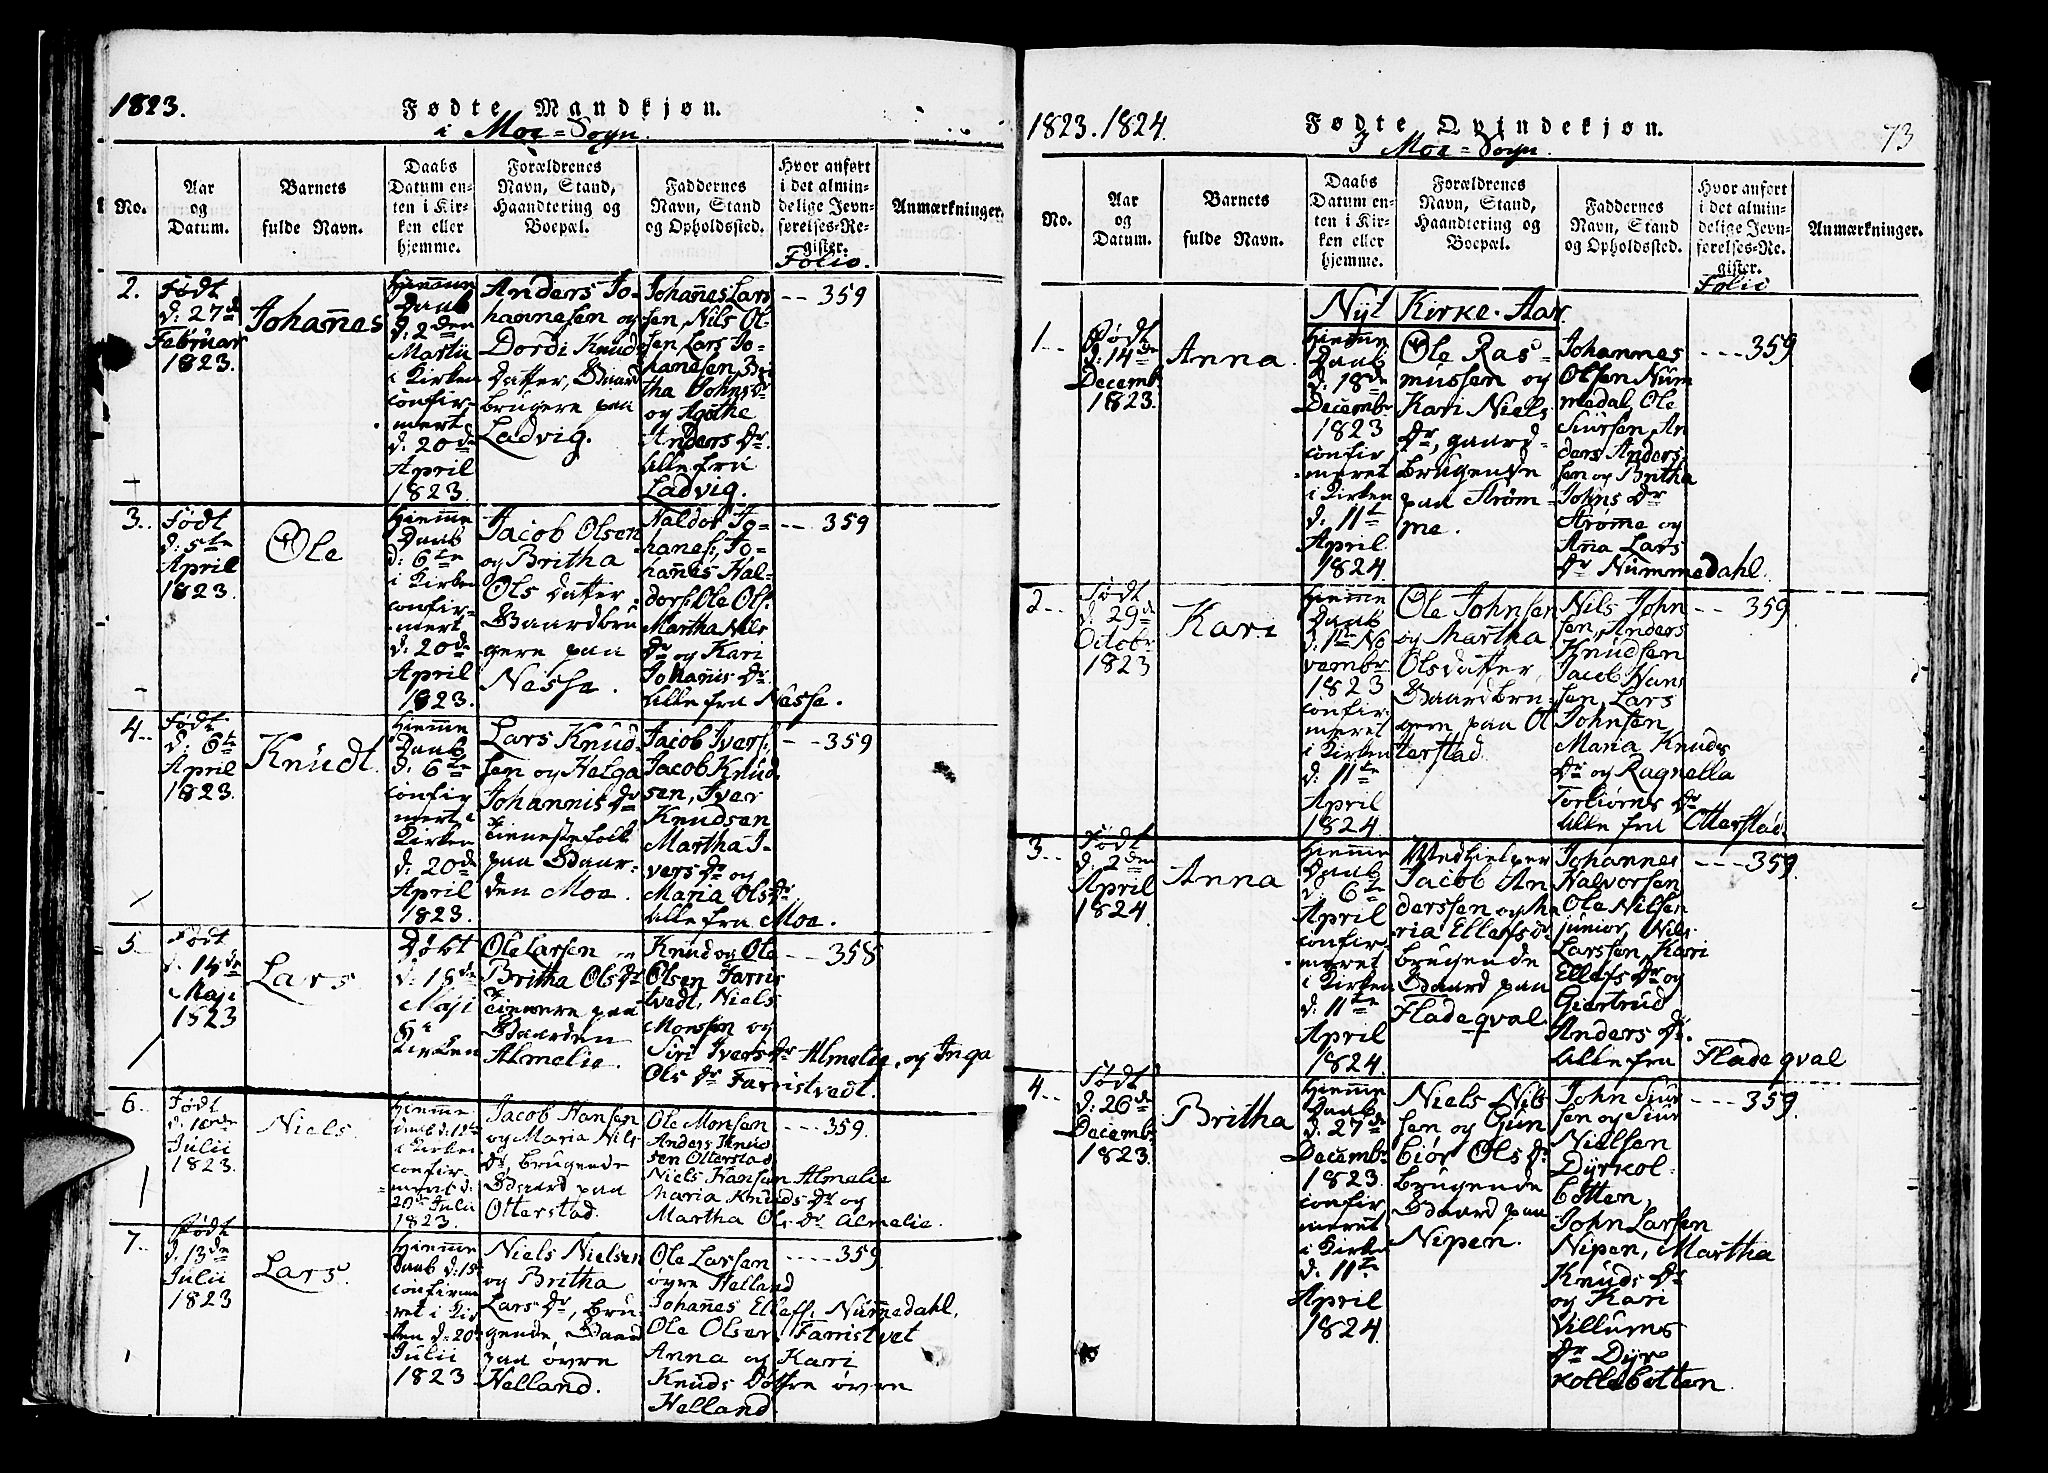 1823.
Fødte Mandkjøn.
i Moe=Sogn.
No.
Aar
og
Datum.
Barnets
fulde Navn.
Daabs
Datum en-
ten i Kir-
ken eller
hjemme.
Forældrenes
Navn, Stand,
Haandtering og
Boepæl.
Faddernes
Navn, Stand
og Opholdssted.
Hvor anført
i det almin-
delige Jevn-
førelses-Re-
gister.
Folio.
Anmærkninger.
2.
Født
d: 27de
Februar
1823.
Johannes
Hiemme
Daab
d: 2den
Martii
i Kirken
confir-
mert
d: 20de
April
1823.
Anders Jo-
hannesen og
Dordi Knud
datter, Gaard
brugere paa
Ladvig.
Johannes Lars
sen, Nils Ol-
sen Lars Jo-
hanesen, Bri
tha Johns dr
og Agathe
Anders Dr
alle fra
Ladvig.
-- 359
3..
Født
d: 5te
April
1823.
Ole
Hiemme
Daab
d: 6te
i Kirken
confir-
mert
d: 20de
April
1823.
Jacob Olsen
og Britha
Ols datter
Gaardbru
gere paa
Nesse.
Haldor Jo-
hanes:, Jo-
hannes Hal-
dors: Ole Ols:
Martha Nils
Dr og Kari
Johanis Dr.
alle fra Nesse.
-- 359
4..
Født
d: 6te
April
1823.
Knudt.
Hiemme
Daab
d: 6te
confir
mert i
Kirken
d: 20de
April
1823.
Lars Knud-
sen og Helga
Johannis Dr
Tienestefolk
paa Gaar-
den Moe.
Jacob Ivers:,
Jacob Knud
sen, Iver
Knudsen
Martha I-
vers Dr og
Maria Ols Dr,
alle fra Moe.
-- 359
5.
Født
d. 14de
Maji
1823
Lars
Døbt
d: 18de
Maji
i
Kirken
Ole Larsen og
Britha Ols Dr
Tienere paa
Gaarden
Almelie.
Knud og Ole
Olsen Farris
tvedt, Niels
Monsen og
Siri Ivers Dr Almelie. og Inga
Ols Dr Farristvedt.
-- 358
6..
Født
Julii
1823.
Niels.
Hiemme
i Kirken
confir-
meret d:
20de Julii
1823.
Jacob Hansen
og Maria Nils
Dr, brugende
Gaard paa
Otterstad.
Ole Monsen
Anders Knud
sen Otterstad
Niels Hansen Almelie
Maria Knuds Dr og
Martha Ols Dr Almelie.
--- 359.
7..
Født
d. 13de
Julii
1823
Lars.
Hiemme
Daab d: 15
confirme
ret i Kir
ken d: 20de
Julii
1823
Niels Nielsen
og Britha
Lars Dr, bru-
gende, Gaard
paa øvre
Helland.
Ole Larsen
øvre Helland
Johannes Ellefs: Nummedahl.
Ole Olsen Farristvet
Anna og Kari
Knuds Døttre øvre
Helland.
---- 359.
1823. 1824.
Fødte Qvindekjøn.
J Moe=Sogn.
73
No.
Aar
og
Datum.
Barnets
fulde Navn.
Daabs
Datum en-
ten i Kir-
ken eller
hjemme.
Forældrenes
Navn, Stand,
Haandtering og
Boepæl.
Faddernes
Navn, Stand
og Opholdssted.
Hvor anført
i det almin-
delige Jevn-
førelses-Re-
gister.
Folio
Anmærkninger.
Nyt Kirke-Aar.
1..
Født
d: 14de
Decembr
1823.
Anna.
Hiemme
Daab
d: 18de
Decembr
1823
confir
meret
i Kirken
d: 11te
April
1824.
Ole Ras-
mussen og
Kari Niels
Dr, gaard-
brugende
paa Strøm-
me.
Johannes
Olsen Num
medal, Ole
Siursen, An
ders Anders
sen og Britha
Johns Dr
Strøme og
Ana Lars
Dr Nummedahl.
--- 359.
2..
Født
d. 29de
Octobr
1823
Kari
Hiemme
Daab
d: 1te No
vembr
1823
confir-
meret
i Kirken
d: 11te
April
1824.
Ole Johnsen
og Martha
Olsdatter,
Gaardbru-
gern paa Ot
terstad.
Nils John
sen, Anders
Knudsen
Jacob Hans
sen, Lars
Johnsen,
Maria Knuds
Dr og Ragnella
Torbiørns Dr
alle fra Otterstad.
-- 359
3..
Født
d. 2den
April
1824.
Anna
Hiemme
Daab
d: 6te
April
confir-
meret
i Kirken
d: 11te
April
1824.
Medhielper
Jacob An
derssen og Ma
ria Ellefs Dr
brugende
Gaard paa
Fladeqval.
Johannes
Halvorsen
Ole Nilsen
junior, Nils
Larssen, Kari
Ellefs Dr og
Giertrud
Anders Dr.
alle fra Fladeqval
--- 359.
4..
Født
d: 26de
Decembr
1823.
Britha
Hiemme
Daab
d: 27de
Decembr
1823.
confir
meret
i Kirke
d: 11te
April
1824.
Niels Nils
sen og Gun
biør Ols Dr
brugende
Gaard paa
Nipen.
John Siur
sen og Siur
Nielsen
Dyrkol-
botten,
John Larsen
Nipen, Martha
Knuds Dr
og Kari
Villums
Dr Dyr
kollebotten.
--- 359.